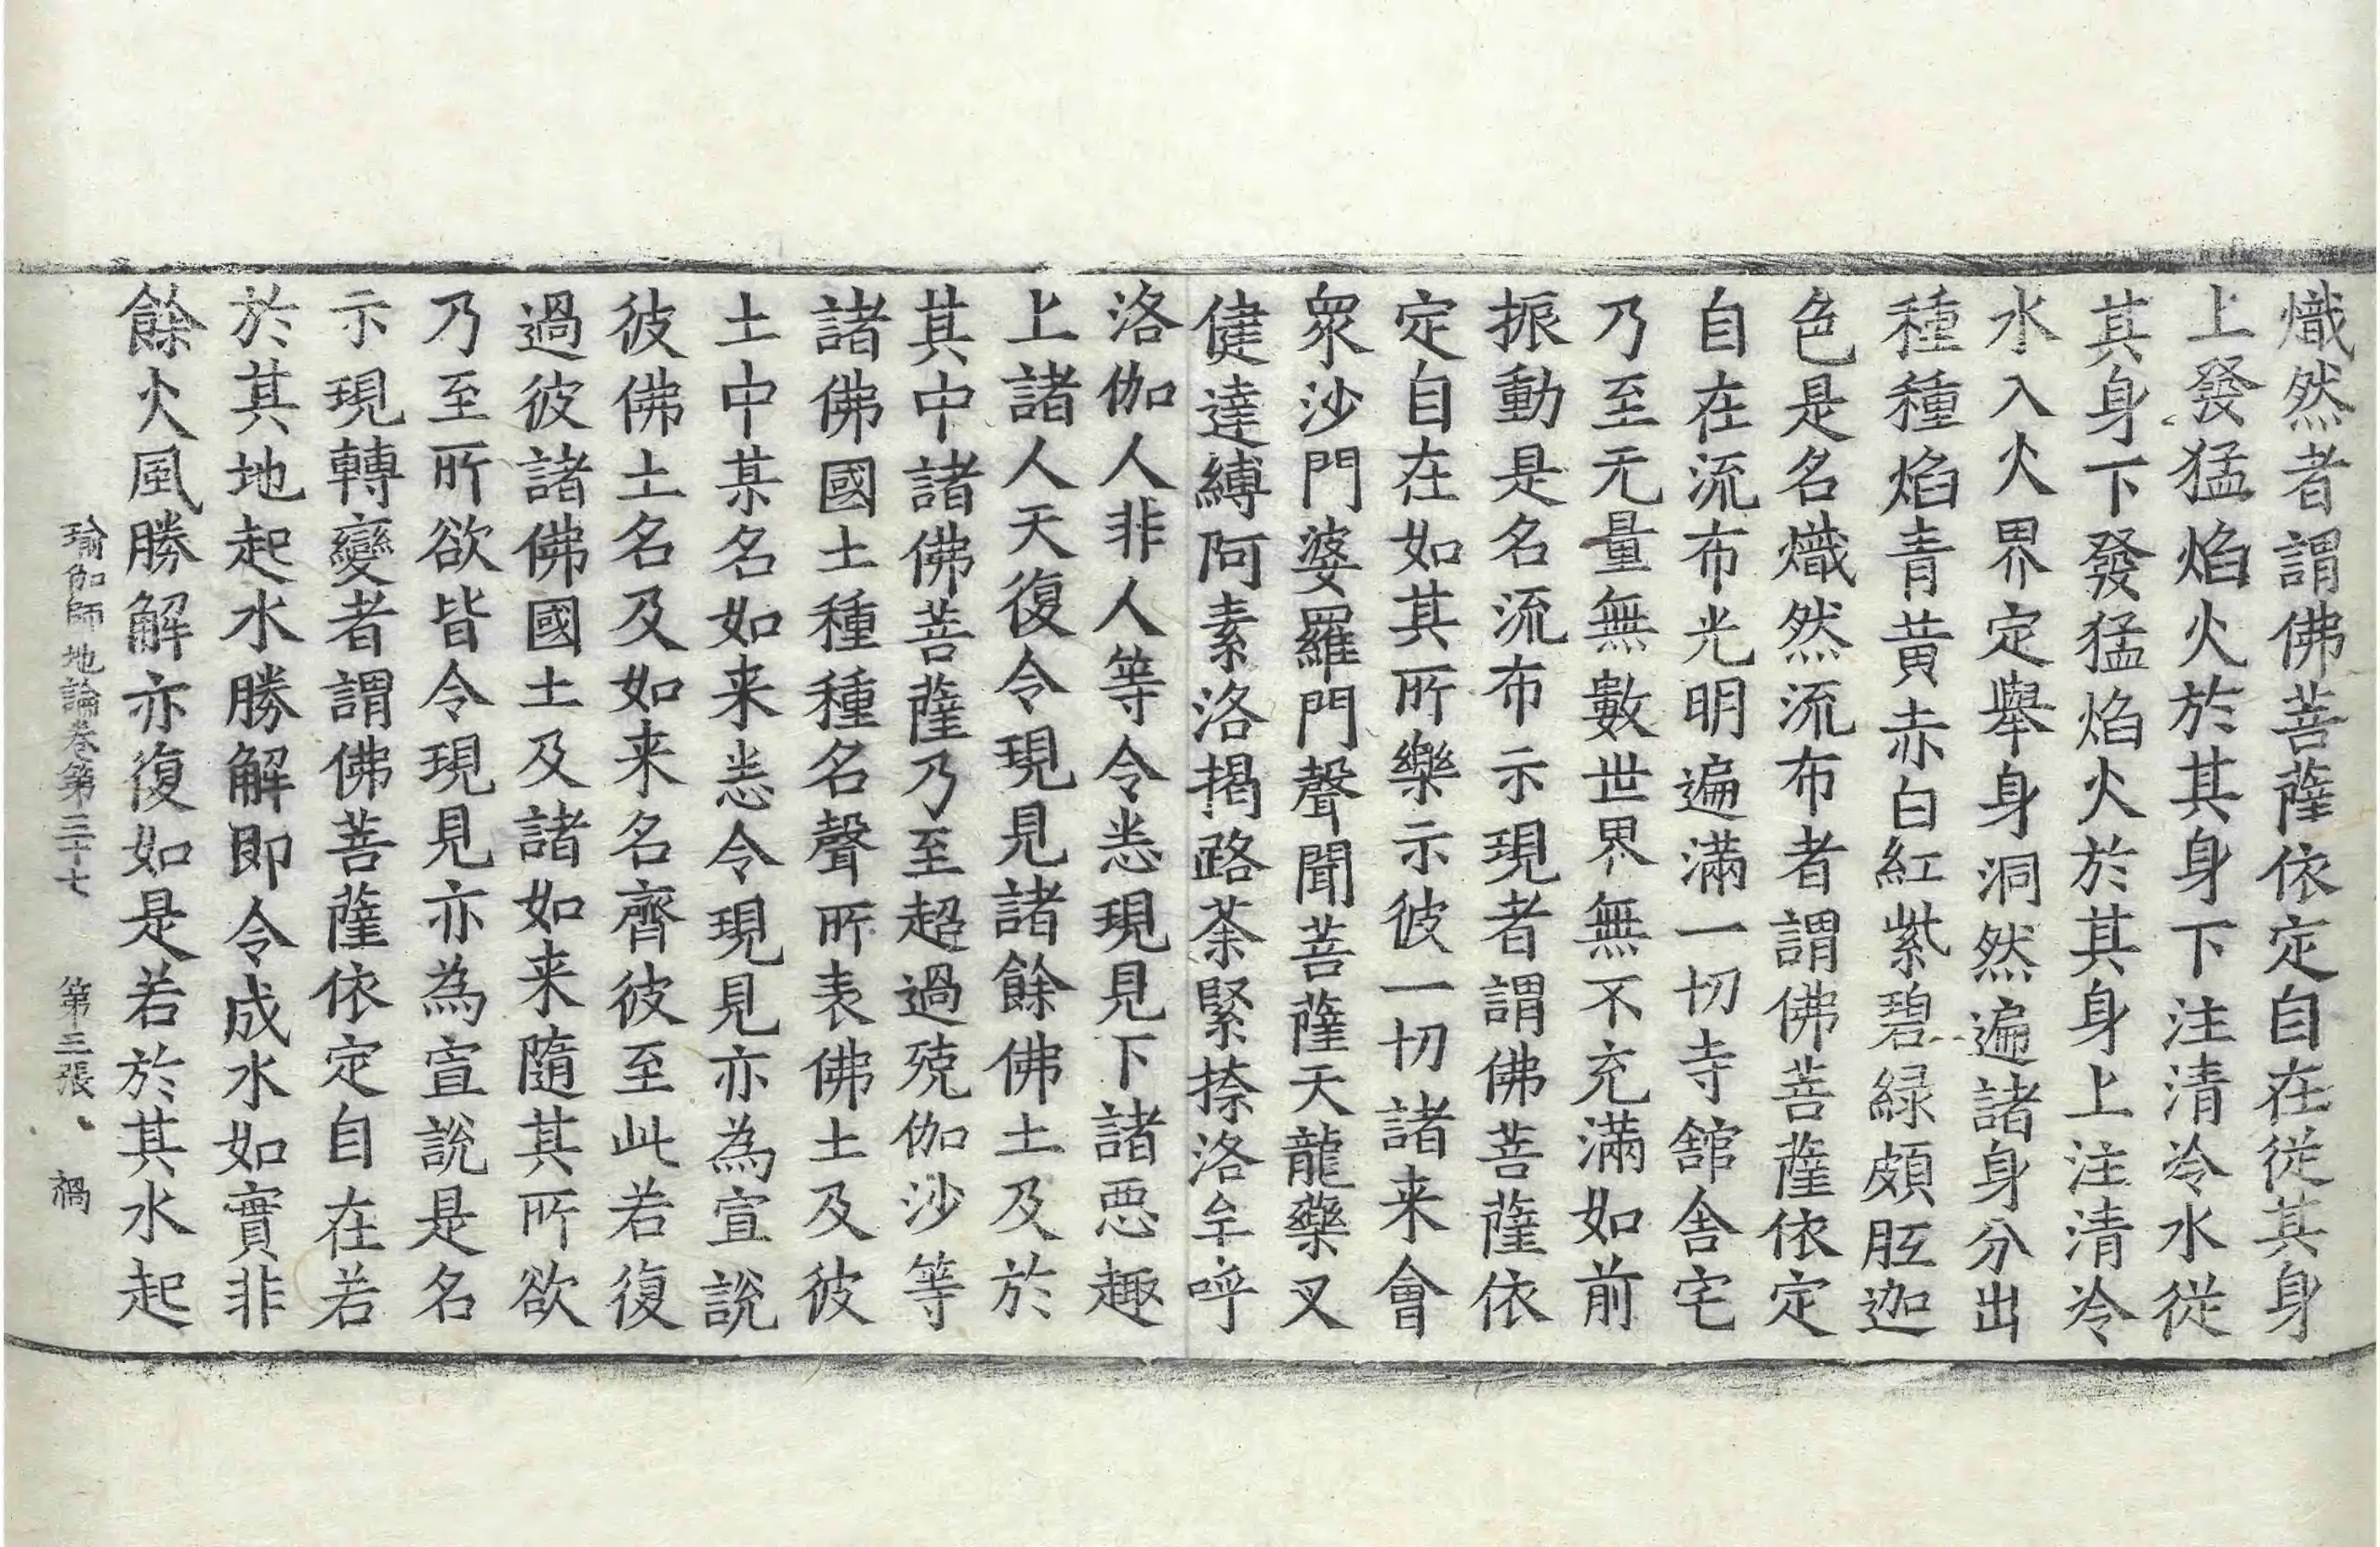 熾然者謂佛菩薩依定自在從其身
上發猛焰火於其身下注清冷水從
其身下發猛焰火於其身上注清冷
水入火界定舉身洞然遍諸身分出
種種焰青黃赤白紅紫碧緑頗胝迦
色是名熾然流布者謂佛菩薩依定
自在流布光明遍滿一切寺舘舎宅
乃至无量無數世界無不充滿如前
振動是名流布示現者謂佛菩薩依
定自在如其所樂示彼一切諸来會
衆沙門婆羅門聲聞菩薩天龍藥叉
健達縛阿素洛揭路荼緊捺洛牟呼
洛伽人非人等令悉現見下諸惡趣
上諸人天復令現見諸餘佛土及於
其中諸佛菩薩乃至超過殑伽沙等
諸佛國土種種名聲所表佛土及彼
土中某名如来悉令現見亦為宣說
彼佛土名及如来名齊彼至此若復
過彼諸佛國土及諸如来隨其所欲
乃至所欲皆令現見亦為宣說是名
示現轉變者謂佛菩薩依定自在若
於其地起水勝解即令成水如實非
餘火風勝解亦復如是若於其水起
瑜伽師地論卷第三十七 第三張 禍